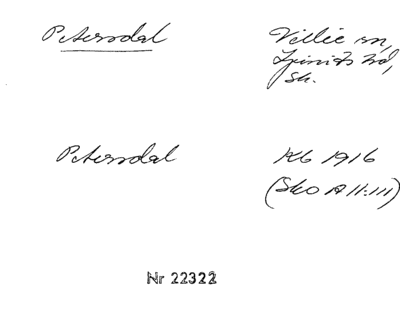 Petersdal
Vellie sn,
Ljunits hd,
Sk.
Petersdal
Kb 1916
(Sko A II:III)
Nr 22322